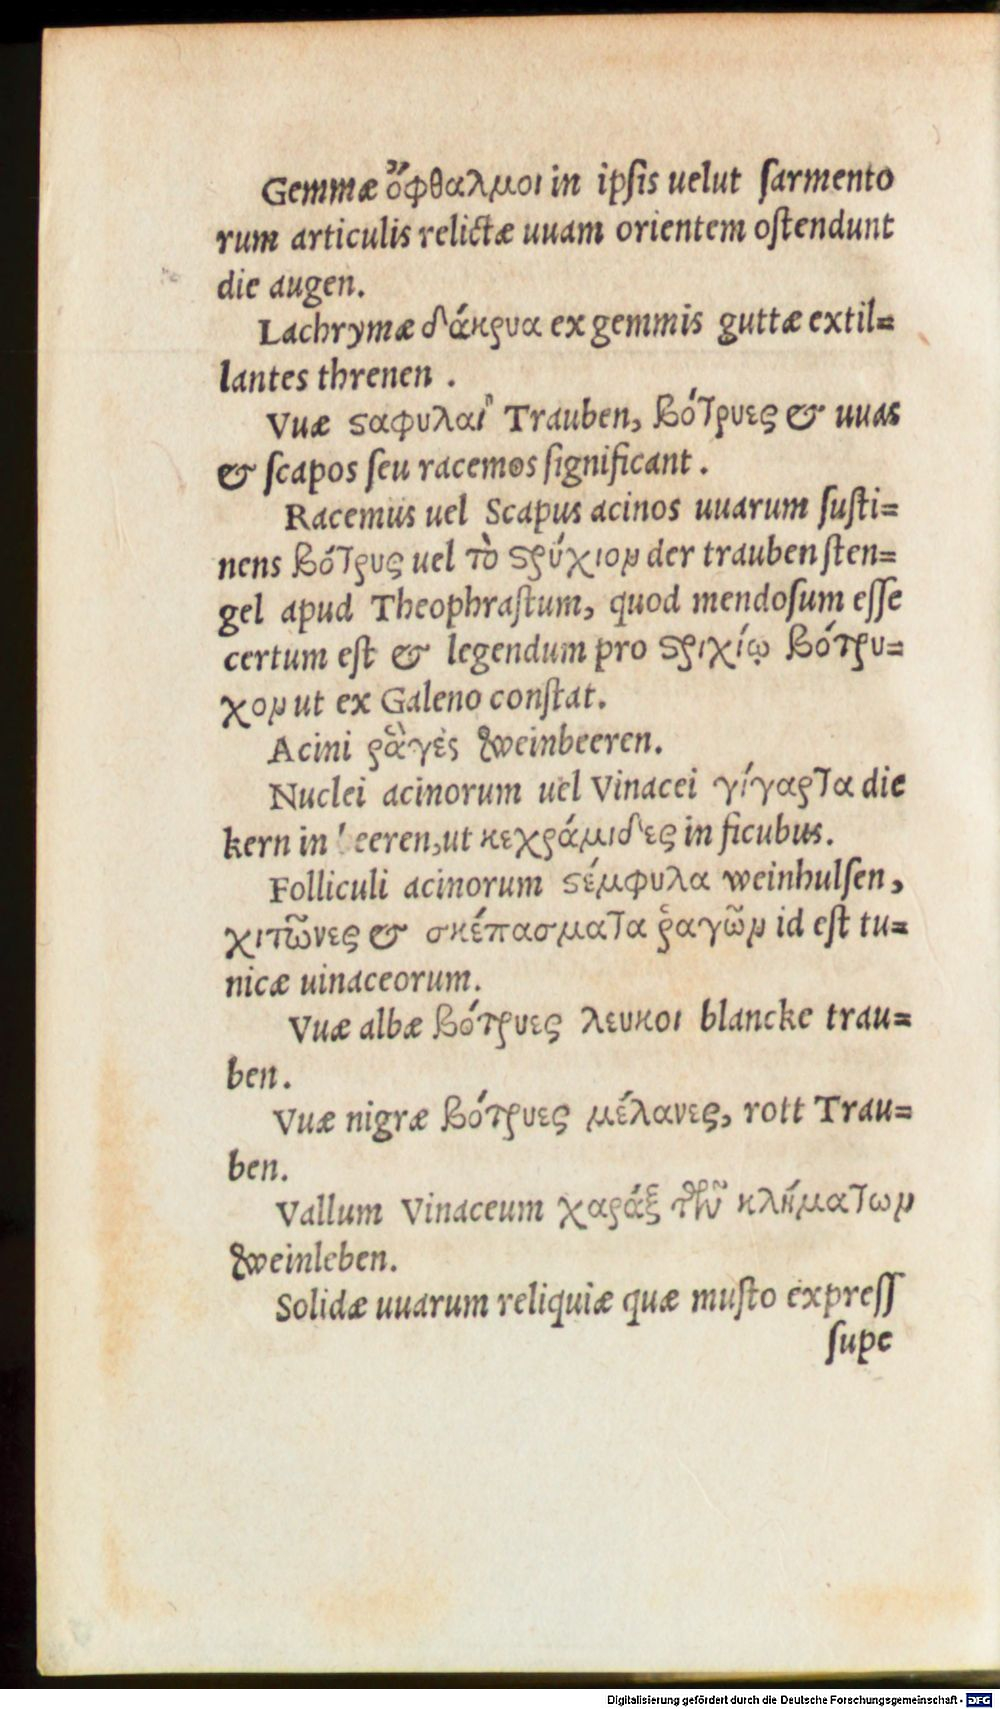 Gemmæ ὄφθαλμοι in ipſis uelut ſarmento
rum articulis relictæ uuam orientem oſtendunt
die augen.
Lachrymæ δάκρυα ex gemmis guttæ extil=
lantes threnen .
Vuæ ϛαφυλαί Trauben, βότρυες & uuas
& ſcapos ſeu racemos ſignificant .
Racemus uel Scapus acinos uuarum ſuſti=
nens βότρυς uel τὸ ϛρύχιον der trauben ſten=
gel apud Theophraſtum, quod mendoſum eſſe
certum eſt & legendum pro ϛριχίῳ βότρυ=
χον ut ex Galeno conſtat.
Acini ῥὰγές weinbeeren.
Nuclei acinorum uel Vinacei γίγαρτα die
kern in beeren, ut κεχράμιδες in ficubus.
Folliculi acinorum ϛέμφυλα weinhulſen,
χιτῶνες & σκέπασματα ῥαγῶν id eſt tu=
nicæ uinaceorum.
Vuæ albæ βότρυες λευκοι blancke trau=
ben.
Vuæ nigræ βότρυες μέλανες, rott Trau=
ben.
Vallum Vinaceum χαράξ τῶν κλήματων
weinleben.
Solidæ uuarum reliquiæ quæ muſto expreſſ
ſupe
Digitalisierung gefördert durch die Deutsche Forschungsgemeinschaft - DFG